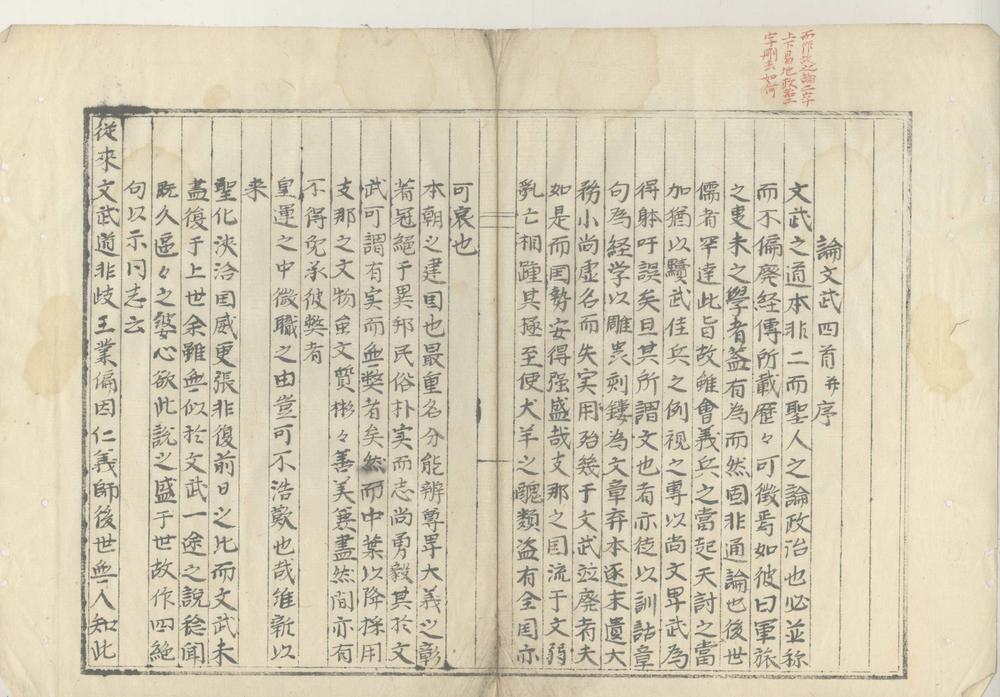 而作故之論之六字
上下易地政第二
字刪去如何
論文武四首并序
文武之道本非二而聖人之論政治也必並称
而不偏廃経傳所載歴々可徴焉如彼曰軍旅
之事未之學者葢有為而然固非通論也後世
儒者罕達此旨故雖會義兵之當起天討之當
加猶以黷武佳兵之例視之專以尚文卑武為
得躰吁誤矣且其所謂文也者亦徒以訓詁章
句為経学以雕虫刻鏤為文章弃本逐末遺大
務小尚虚名而失実用殆幾于文武並廃者夫
如是而国勢安得强盛哉支那之国流于文弱
乱亡相踵其極至使犬羊之醜類盗有全国亦
可哀也
本朝之建国也最重名分能辨尊卑大義之彰
著冠絶于異邦民俗朴実而志尚勇毅其於文
武可謂有実而無弊者矣然而中葉以降採用
支那之文物虽文質彬々善美兼盡然間亦有
不得免承彼弊者
皇運之中微職之由豈可不浩歎也哉維新以
来
聖化浹洽国威更張非復前日之比而文武未
盡復于上世余雖無似於文武一途之說稔聞
既久區々之婆心欲此説之盛于世故作四絶
句以示同志云
従来文武道非歧王業偏因仁義師後世無人知此